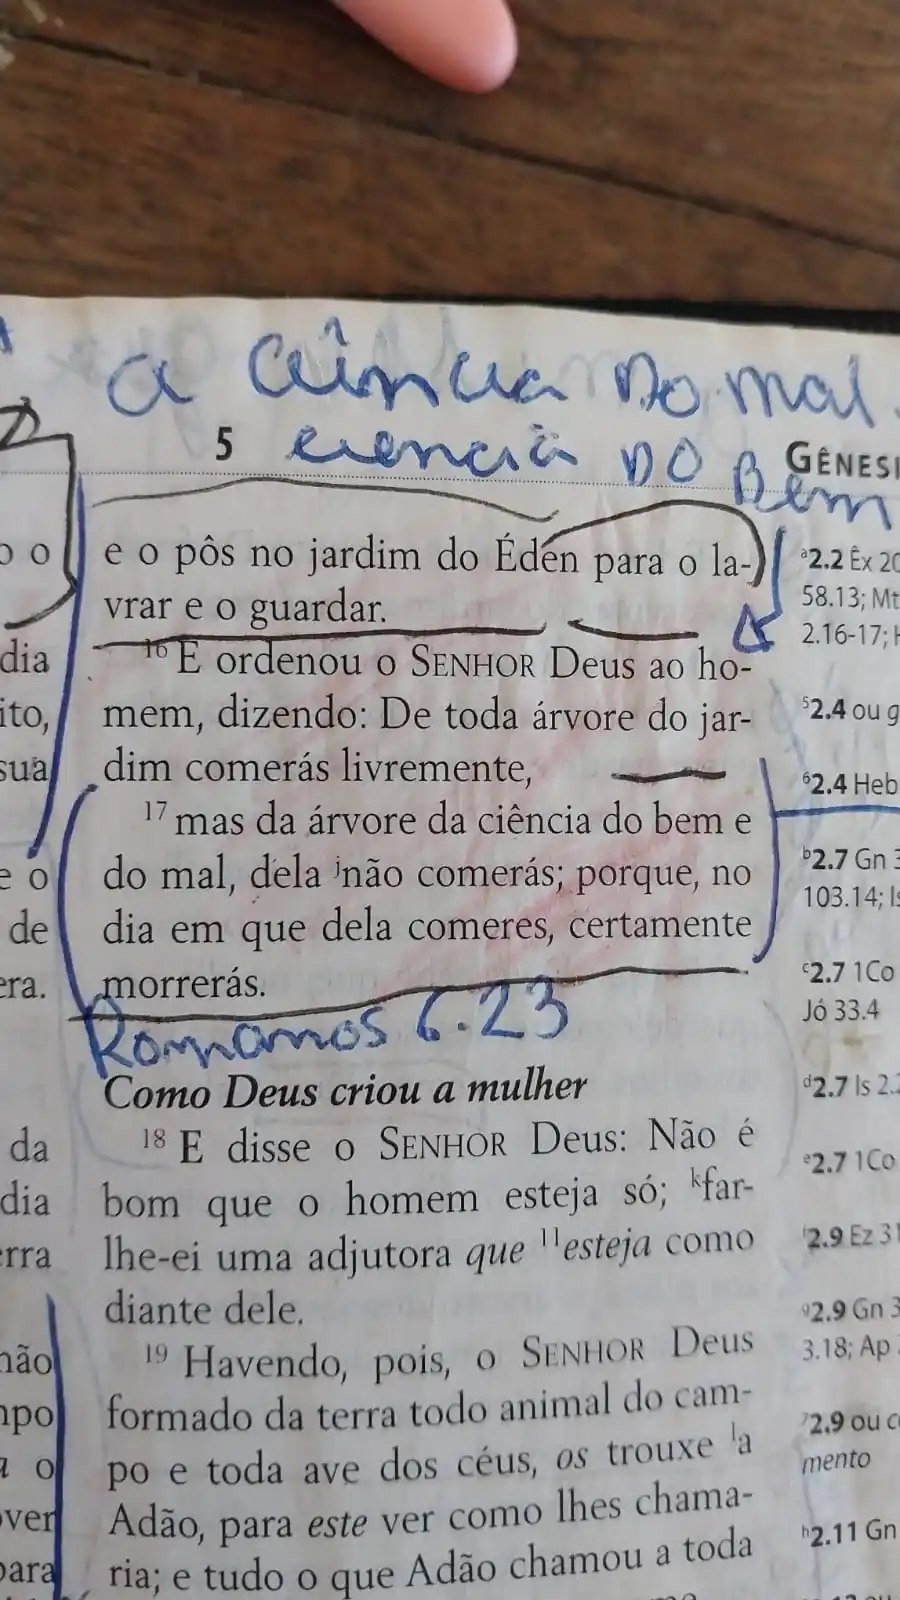 a ciência do mal.
ciência do Bem
5
GÊNESI
e o pôs no jardim do Éden para o la-
vrar e o guardar.
16 E ordenou o SENHOR Deus ao ho-
mem, dizendo: De toda árvore do jar-
dim comerás livremente,
17 mas da árvore da ciência do bem e
do mal, dela jnão comerás; porque, no
dia em que dela comeres, certamente
morrerás.
Romanos 6.23
Como Deus criou a mulher
18 E disse o SENHOR Deus: Não é
bom que o homem esteja só; kfar-
lhe-ei uma adjutora que 11esteja como
diante dele.
19 Havendo, pois, o SENHOR Deus
formado da terra todo animal do cam-
po e toda ave dos céus, os trouxe la
Adão, para este ver como lhes chama-
ria; e tudo o que Adão chamou a toda
o o
dia
ito,
sua
e o
de
era.
da
dia
erra
não
mpo
a o
over
para
a2.2 Êx 20
58.13; Mt
2.16-17; H
52.4 ou g
62.4 Heb
b2.7 Gn 3
103.14; Is
c2.7 1Co
Jó 33.4
d2.7 Is 2.2
e2.7 1Co
f2.9 Ez 31
g2.9 Gn 3
3.18; Ap
72.9 ou c
mento
h2.11 Gn